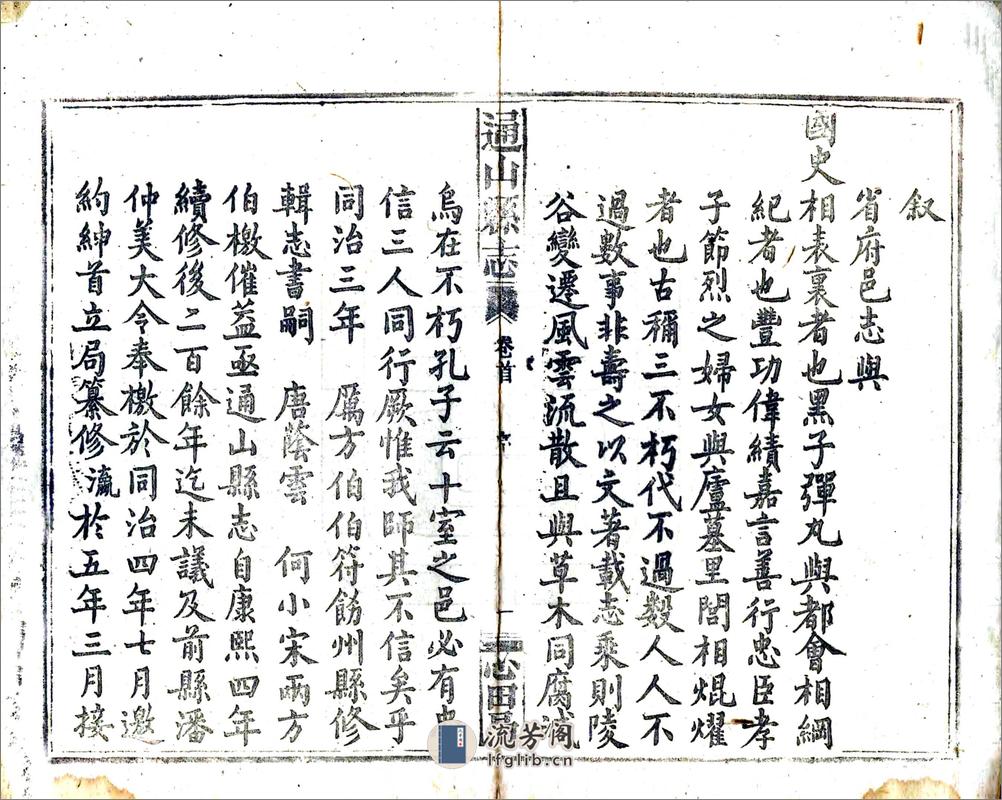 叙
省府邑志與
國史相表裏者也黑子彈丸與都會相綱
紀者也豐功偉績嘉言善行忠臣孝
子節烈之婦女與廬墓里閭相焜燿
者也古稱三不朽代不過數人人不
過數事非壽之以文著載志乘則陵
谷變遷風雲流散且與草木同腐滅
通山縣志 卷首 一 心田局
烏在不朽孔子云十室之邑必有忠
信三人同行厥惟我師其不信矣乎
同治三年 厲方伯伯符飭州縣修
輯志書嗣 唐蔭雲 何小宋兩方
伯檄催益亟通山縣志自康熙四年
續修後二百餘年迄未議及前縣潘
仲美大令奉檄於同治四年七月邀
約紳首立局纂修瀛於五年三月接
流芳阁
lfglib.cn